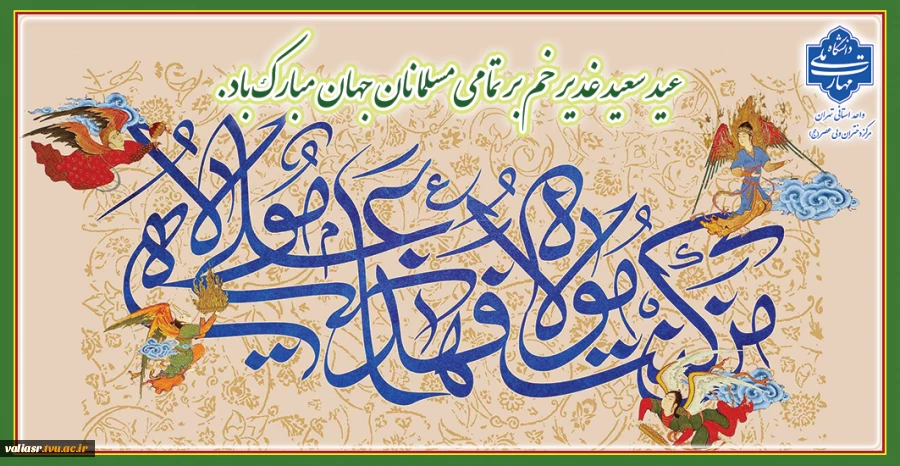 عید سعید غدیر خم بر تمامی مسلمانان جهان مبارک باد.
دانشگاه ملی مهارت
واحد استانی تهران
مرکز دختران ولی عصر (عج)
من کنت مولاه فهذا علی مولاه
valiasr.tvu.ac.ir